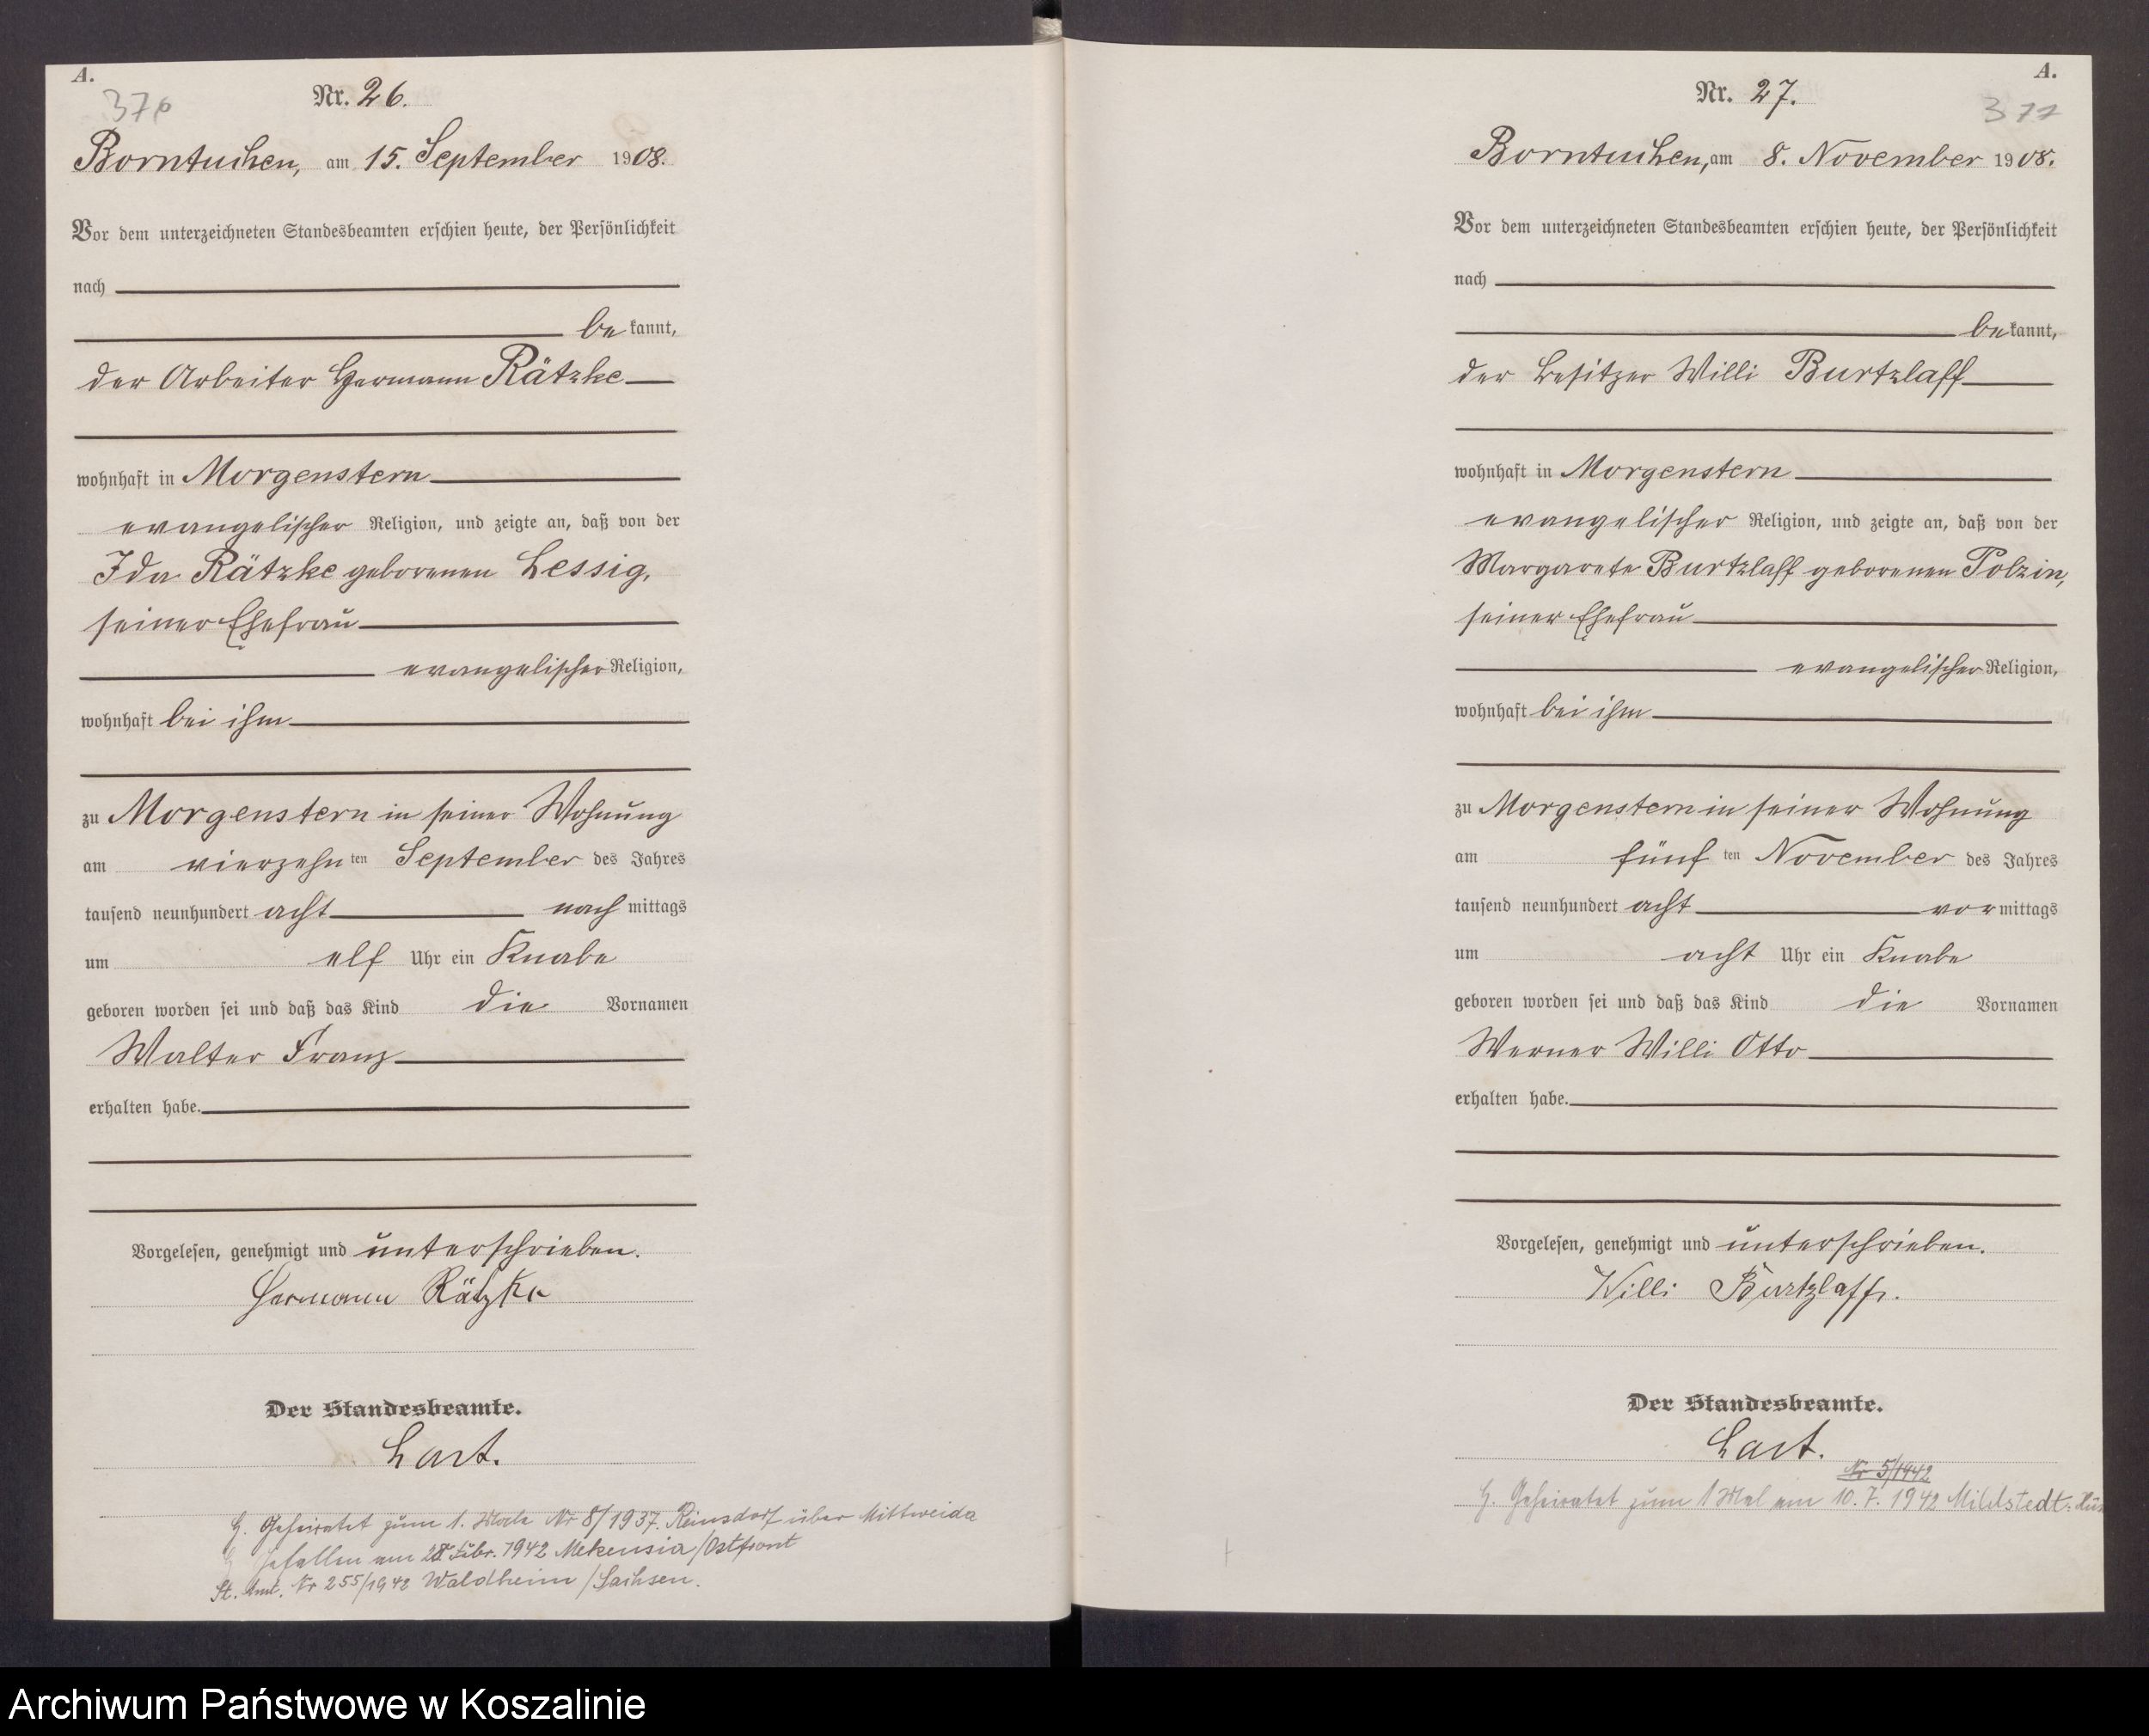 A.
376
Nr. 26.
Borntuchen, am 15. September 1908.
Vor dem unterzeichneten Standesbeamten erschien heute, der Persönlichkeit
nach
be kannt,
der Arbeiter Hermann Rätzke
wohnhaft in Morgenstern
evangelischer Religion, und zeigte an, daß von der
Ida Rätzke geborenen Lessig,
seiner Ehefrau
evangelischer Religion,
wohnhaft bei ihm
zu Morgenstern in seiner Wohnung
am vierzehn ten September des Jahres
tausend neunhundert acht nach mittags
um elf Uhr ein Knabe
geboren worden sei und daß das Kind die Vornamen
Walter Franz
erhalten habe.
Vorgelesen, genehmigt und unterschrieben.
Hermann Rätzke
Der Standesbeamte.
Last.
H. Geheiratet zum 1. Male Nr 8/1937. Reinsdorf über Mittweida
Gefallen am 28. Febr. 1942 /Ostfront
St. Amt. Nr 255/1942 Waldheim /Sachsen.
A.
377
Nr. 27.
Borntuchen, am 8. November 1908.
Vor dem unterzeichneten Standesbeamten erschien heute, der Persönlichkeit
nach
be kannt,
der Besitzer Willi Burtzlaff
wohnhaft in Morgenstern
evangelischer Religion, und zeigte an, daß von der
Margarete Burtzlaff geborenen Polzin,
seiner Ehefrau
evangelischer Religion,
wohnhaft bei ihm
zu Morgenstern in seiner Wohnung
am fünf ten November des Jahres
tausend neunhundert acht vor mittags
um acht Uhr ein Knabe
geboren worden sei und daß das Kind die Vornamen
Werner Willi Otto
erhalten habe.
Vorgelesen, genehmigt und unterschrieben.
Willi Burtzlaff.
Der Standesbeamte.
Last.
Nr 5/1942
H. Geheiratet zum 1 Mal am 10. 7. 1942 Mildstedt.
Archiwum Państwowe w Koszalinie